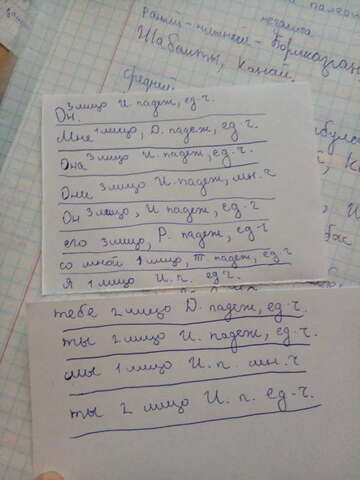 ранний - нижней -
Шабакты, Канай
средний
Он 3 лицо И падеж, ед.ч.
Мне 1 лицо, Д. падеж, ед.ч.
Она 3 лицо И. падеж, ед.ч.
Они 3 лицо И. падеж, мн.ч
Он 3 лицо, И падеж, ед.ч
его 3 лицо, Р. падеж, ед.ч
со мной 1 лицо, Т падеж, ед.ч
Я 1 лицо И.п. ед.ч.
тебе 2 лицо Д. падеж, ед.ч.
ты 2 лицо И. падеж, ед.ч.
мы 1 лицо И.п. мн.ч
ты 2 лицо И.п. ед.ч.